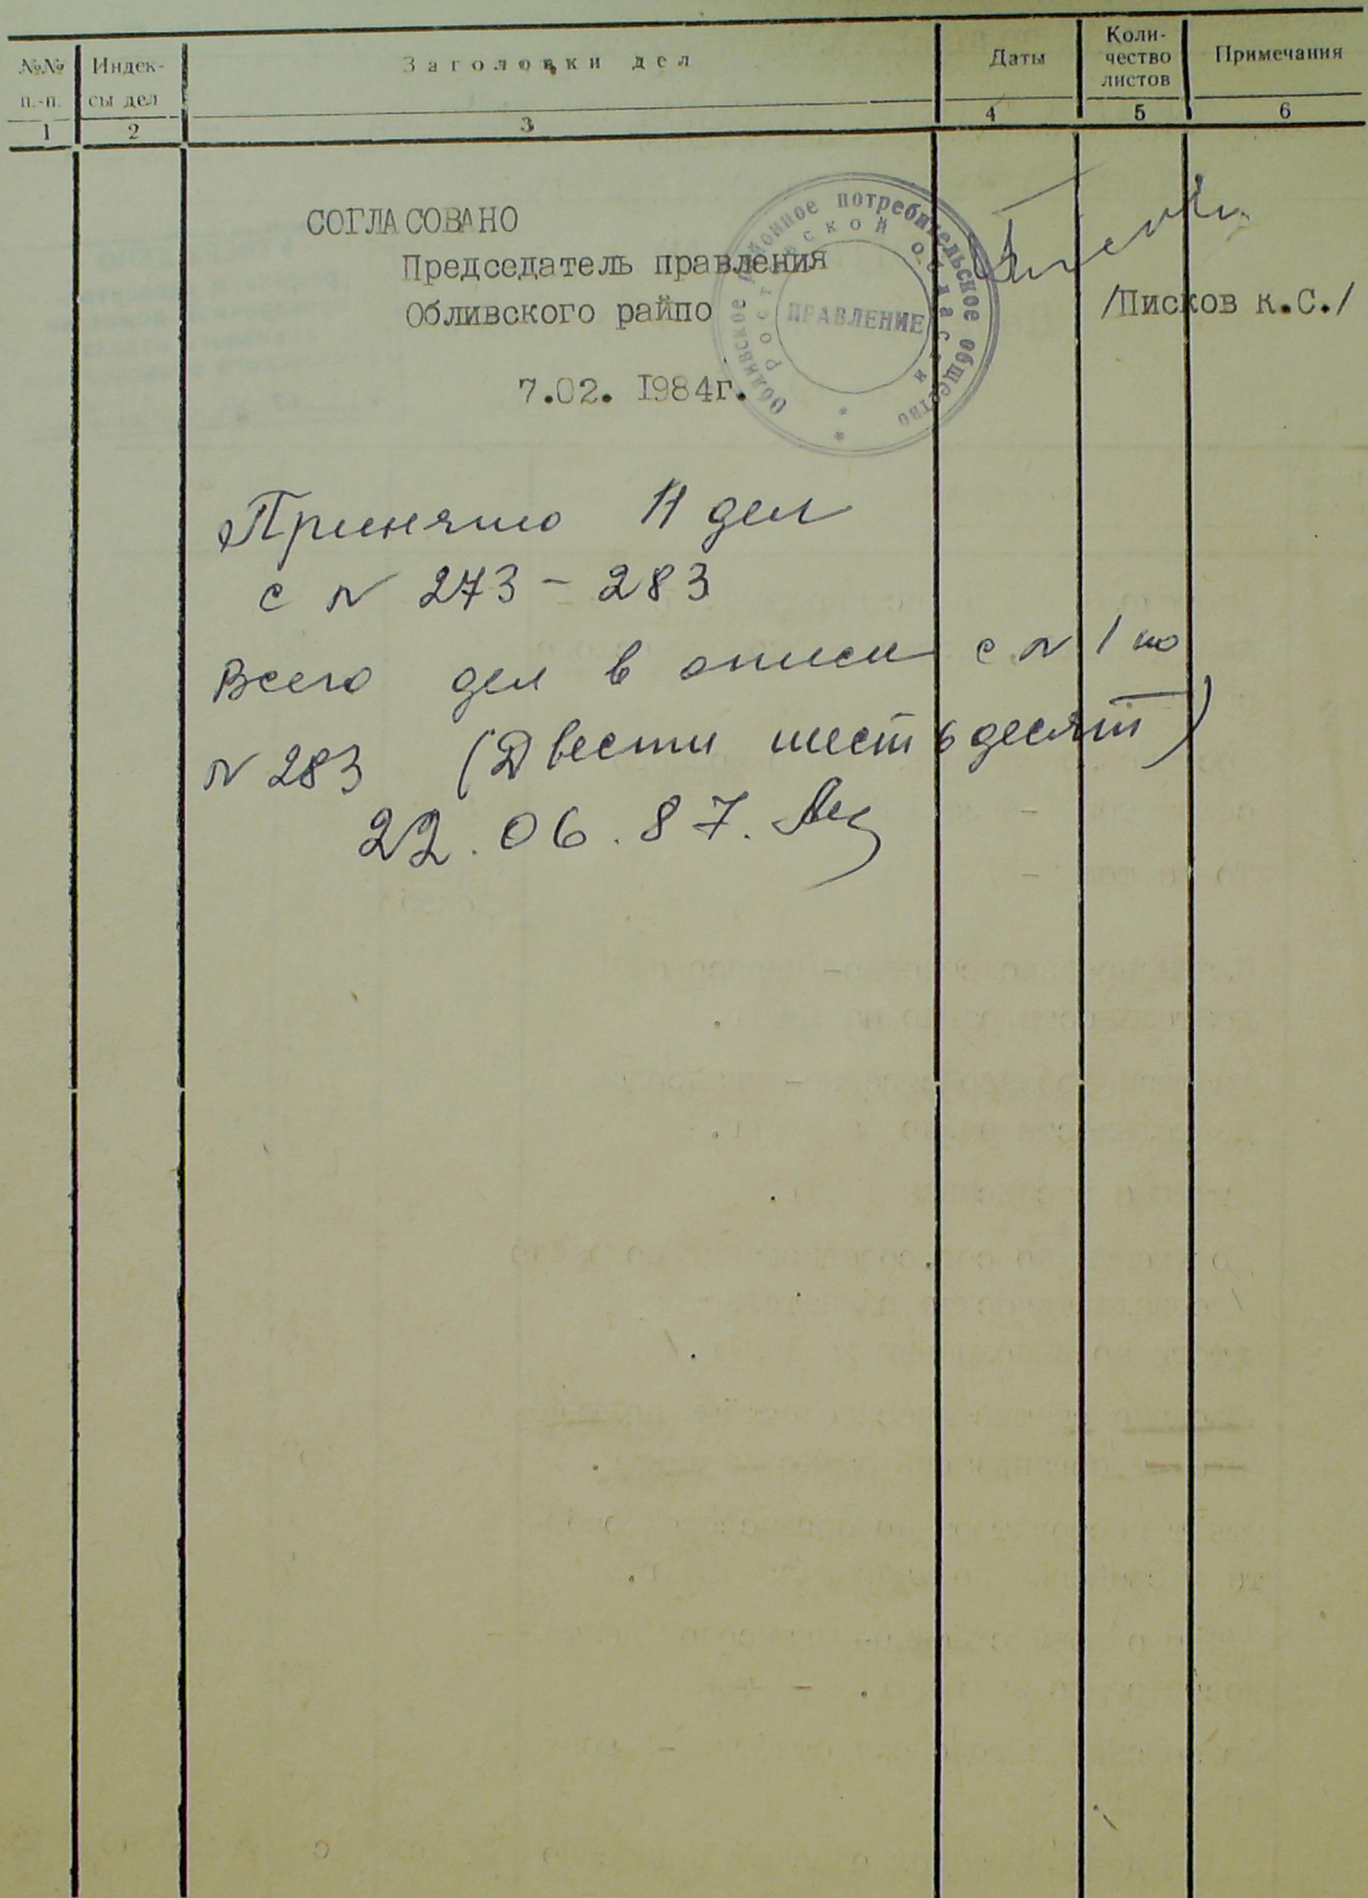 №№ п.-п.
Индек-
сы дел
Заголовки дел
Даты
Коли-
чество
листов
Примечания
1 2 3 4 5 6
СОГЛАСОВАНО
Председатель правления
Обливского райпо
/Писков к.С./
7.02. 1984г.
Обливское районное потребительское общество
Ростовской области
ПРАВЛЕНИЕ
Принято 11 дел
с № 273 - 283
Всего дел в описи с № 1 по
№ 283 (Двести шестьдесят)
22.06.87.